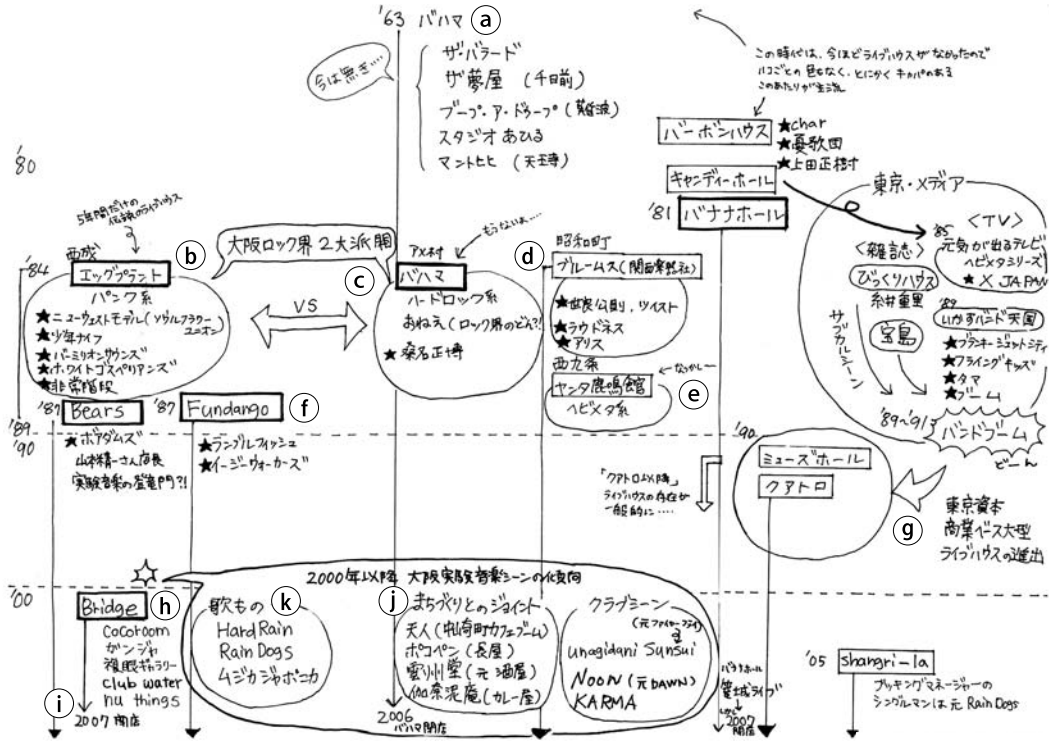 '63 バハマ ⓐ
今は無き….
ザ・バラード
ザ夢屋 (千日前)
ブープ・ア・ドゥープ (難波)
スタジオあひる
マントヒヒ (天王寺)
この時代は、今ほどライブハウスがなかったので
ハコごとの色もなく、とにかくキャパのある
このあたりが主流
バーボンハウス
★char
★憂歌団
★上田正樹
キャンディーホール
'81 バナナホール
'80
5年間だけの
伝説のライブハウス
西成
ⓑ
'84 エッグプラント
パンク系
★ニューウェストモデル(ソウルフラワーユニオン)
★少年ナイフ
★バーミリオンサウンズ
★ホワイトゴスペリアンズ
★非常階段
大阪ロック界 2大派閥
VS
アメ村
もうないよ….
ⓒ
バハマ
ハードロック系
おねえ(ロック界のどん?!)
★桑名正博
昭和町
ⓓ
ブルームス(関西楽器社)
★世良公則,ツイスト
★ラウドネス
★アリス
西九条
ヤンタ鹿鳴館
←なつかし〜
ⓔ
ヘビメタ系
東京・メディア
'85
<TV>
元気が出るテレビ
ヘビメタシリーズ
★X JAPAN
<雑誌>
びっくりハウス
糸井重里
宝島
サブカルシーン
'89
いかすバンド天国
★ブランキージェットシティ
★フライングキッズ
★タマ
★ブーム
'89〜'91
バンドブーム
どーん
'87 Bears
'87 Fundango ⓕ
'89
'90
★ボアダムズ
山本精一さん店長
「実験音楽の登竜門?!」
★ランブルフィッシュ
★イージーウォーカーズ
「クアトロ以降」
ライブハウスの存在が
一般的に……
'90
ミューズホール
クアトロ
ⓖ
東京資本
商業ベース大型
ライブハウスの進出
2000年以降 大阪実験音楽シーンの傾向
'00
Bridge ⓗ
cocoroom
ガンジャ
複眼ギャラリー
club water
nu things
ⓘ
2007 閉店
歌もの ⓚ
Hard Rain
Rain Dogs
ムジカジャポニカ
ⓙ
まちづくりとのジョイント
天人(中崎町カフェブーム)
ポコペン(長屋)
雲州堂(元 酒屋)
伽奈泥庵(カレー屋)
2006
バハマ閉店
クラブシーン
(元ファイヤーフライ)
unagidani Sunsui
NOON(元DAWN)
KARMA
バナナホール
しかし
2007
閉店
'05 shangri-la
ブッキングマネージャーの
シングルマンは元 Rain Dogs